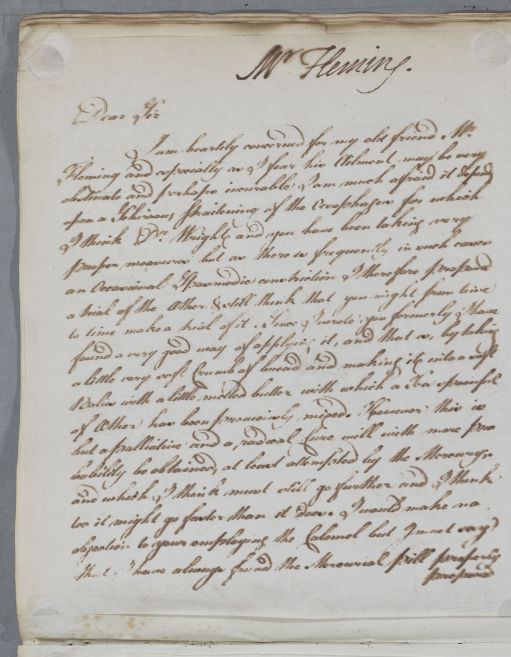 Mr Fleming.
Dear Sir
I am heartily concerned for my old friend Mr
Fleming and especially as I fear his Ailment may be very
obstinate and perhaps incurable I am much afraid it depends
upon a Schirrous straitening of the Oesophagus for which
I think Dr. Wright and you have been taking very
proper measures but as there is frequently in such cases
an Occasional Spasmodic constriction I therefore proposed
a trial of the Æther & still think that you might from time
to time make a trial of it. Since I wrote you formerly I have
found a very good way of applying it, and that is, by taking
a little very soft Crumb of bread and making it into a soft
Bolus with a little melted butter with which a Tea spoonful
of Æther has been previously mixed. However this is
but a palliative and a radical Cure will with more pro
bability be obtained, at least attempted by the Mercurys
and which I think must still go further and I think
too it might go faster than it does. I would make no
objection to your employing the Calomel but I must say
that I have always found the Mercurial pill properly
prepared